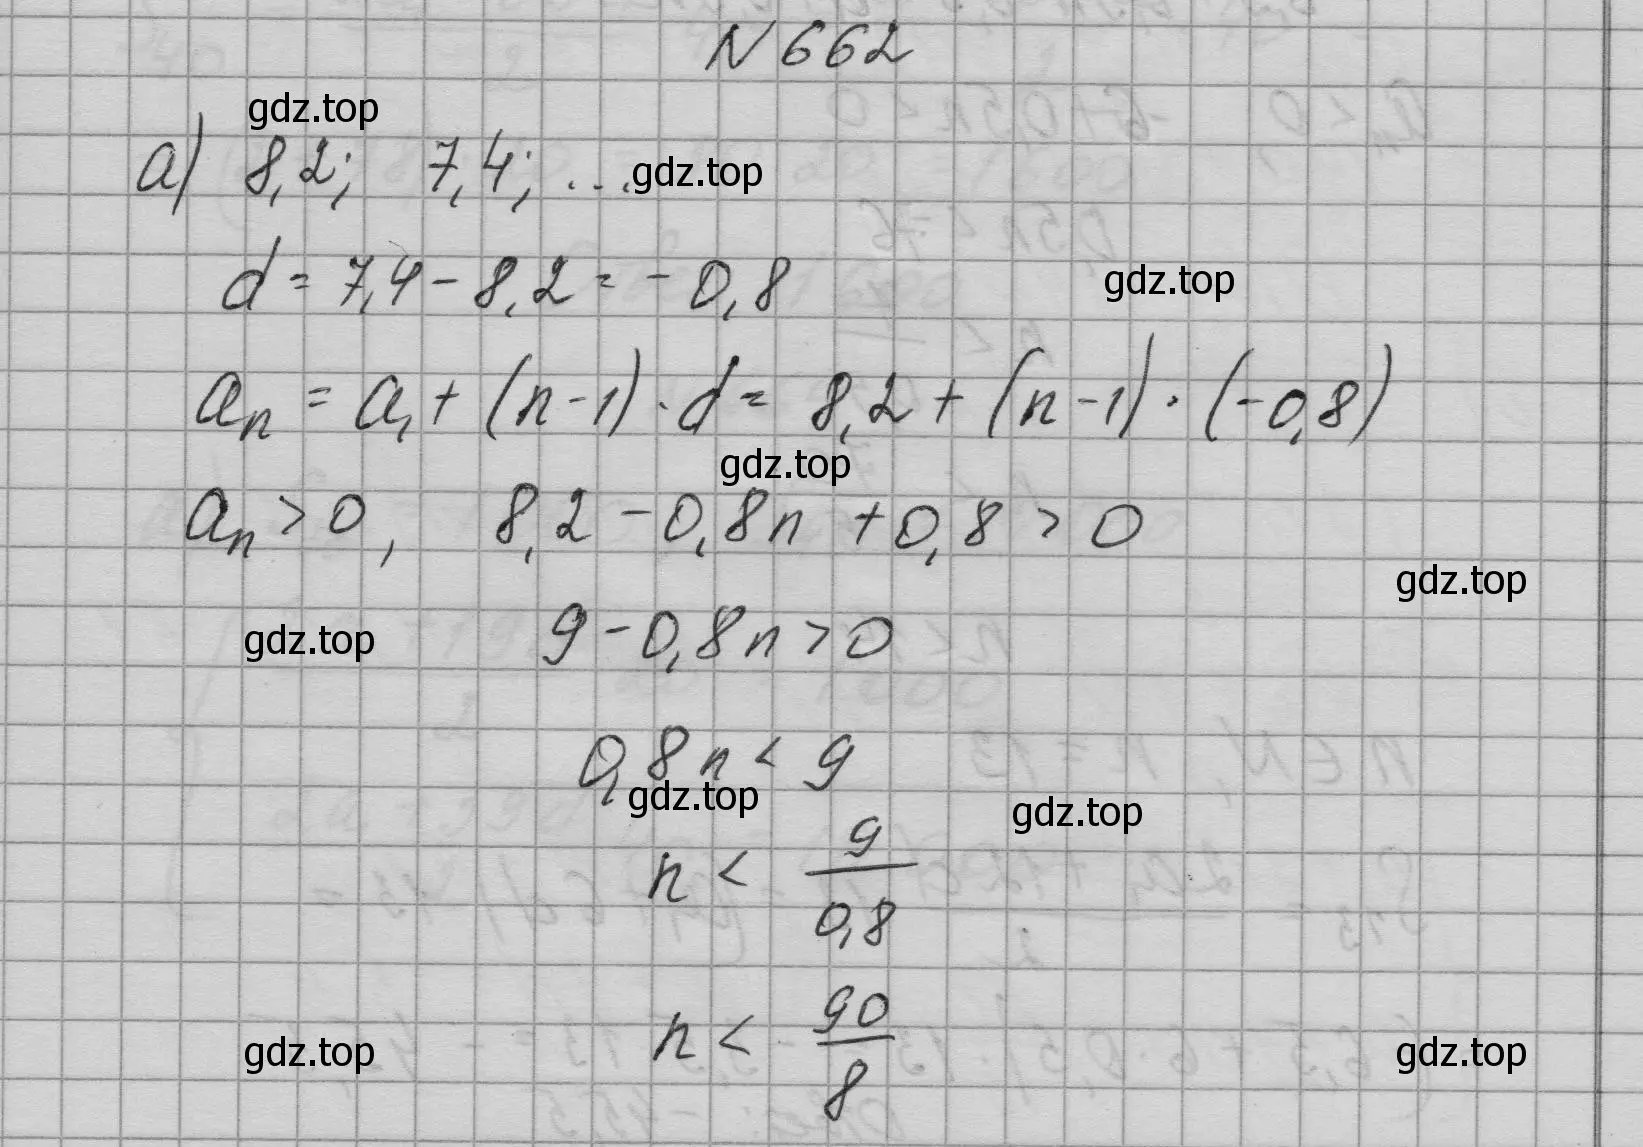 N 662
gdz.top
а) 8,2; 7,4; ... gdz.top
d = 7,4 - 8,2 = - 0,8
gdz.top
aₙ = a₁ + (n-1) · d = 8,2 + (n-1) · (-0,8)
gdz.top
aₙ > 0, 8,2 - 0,8n + 0,8 > 0
gdz.top
gdz.top 9 - 0,8n > 0
0,8n < 9
gdz.top gdz.top
n < 9/0,8
gdz.top n < 90/8 gdz.top